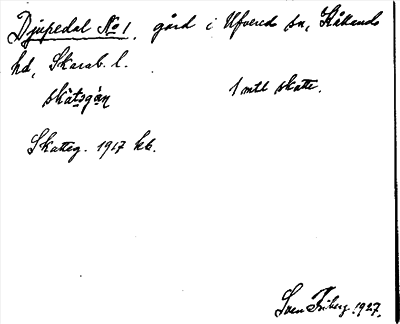 Djupedal No 1. gård i Ufvereds sn, Kållands
hd, Skarab. l.
skǻtsgá̀n 1 mtl skatte.
Skatteg. 1917 kb.
Sven Friberg. 1927.